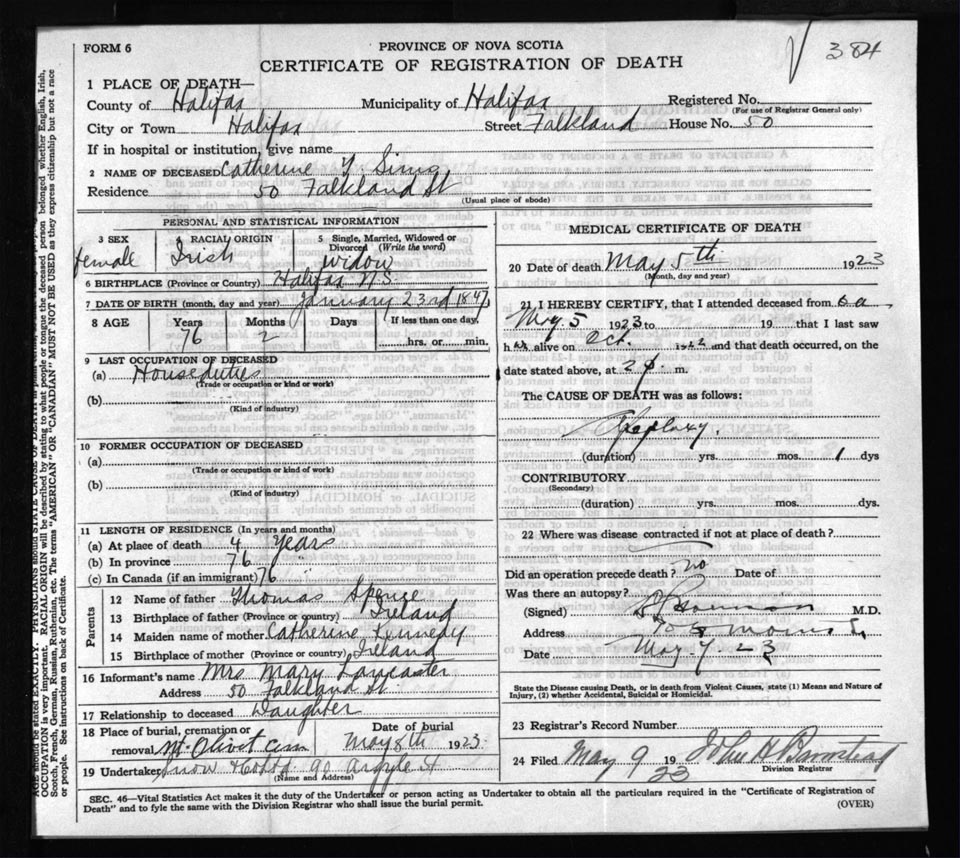 384
FORM 6
PROVINCE OF NOVA SCOTIA
CERTIFICATE OF REGISTRATION OF DEATH
1 PLACE OF DEATH—
County of Halifax Municipality of Halifax Registered No.
(For use of Registrar General only)
City or Town Halifax Street Falkland House No. 50
If in hospital or institution, give name
2 NAME OF DECEASED Catherine Sims
Residence 50 Falkland St
(Usual place of abode)
PERSONAL AND STATISTICAL INFORMATION
3 SEX female
4 RACIAL ORIGIN Irish
5 Single, Married, Widowed or Divorced (Write the word) widow
6 BIRTHPLACE (Province or Country) Halifax N.S.
7 DATE OF BIRTH (month, day and year) January 23rd 1847
8 AGE Years Months Days If less than one day,
76 2 hrs. or min.
9 LAST OCCUPATION OF DECEASED
(a) Houseduties
(Trade or occupation or kind or work)
(b)
(Kind of industry)
10 FORMER OCCUPATION OF DECEASED
(a)
(Trade or occupation or kind of work)
(b)
(Kind of industry)
11 LENGTH OF RESIDENCE (In years and months)
(a) At place of death 4 years
(b) In province 76 "
(c) In Canada (if an immigrant) 76 "
Parents
12 Name of father Thomas Spence
13 Birthplace of father (Province or country) Ireland
14 Maiden name of mother Catherine Kennedy
15 Birthplace of mother (Province or country) Ireland
16 Informant's name Mrs Mary Lancaster
Address 50 Falkland St.
17 Relationship to deceased Daughter
18 Place of burial, cremation or removal Mt. Olivet Cem
Date of burial May 8th 1923
19 Undertaker Snow & Co Ltd 90 Argyle St
(Name and Address)
MEDICAL CERTIFICATE OF DEATH
20 Date of death May 5th 1923
(Month, day and year)
21 I HEREBY CERTIFY, that I attended deceased from
May 5 1923 to 19 that I last saw
h alive on Oct. 1922 and that death occurred, on the
date stated above, at m.
The CAUSE OF DEATH was as follows:
Apoplexy
(duration) yrs. mos. 1 dys
CONTRIBUTORY
(Secondary)
(duration) yrs. mos. dys.
22 Where was disease contracted if not at place of death?
Did an operation precede death? no Date of
Was there an autopsy?
(Signed) M.D.
Address Morris St
Date May 7 23
State the Disease causing Death, or in death from Violent Causes, state (1) Means and Nature of
Injury, (2) whether Accidental, Suicidal or Homicidal.
23 Registrar's Record Number
24 Filed May 9 1923 John H Barnstead
Division Registrar
SEC. 46—Vital Statistics Act makes it the duty of the Undertaker or person acting as Undertaker to obtain all the particulars required in the "Certificate of Registration of
Death" and to fyle the same with the Division Registrar who shall issue the burial permit. (OVER)